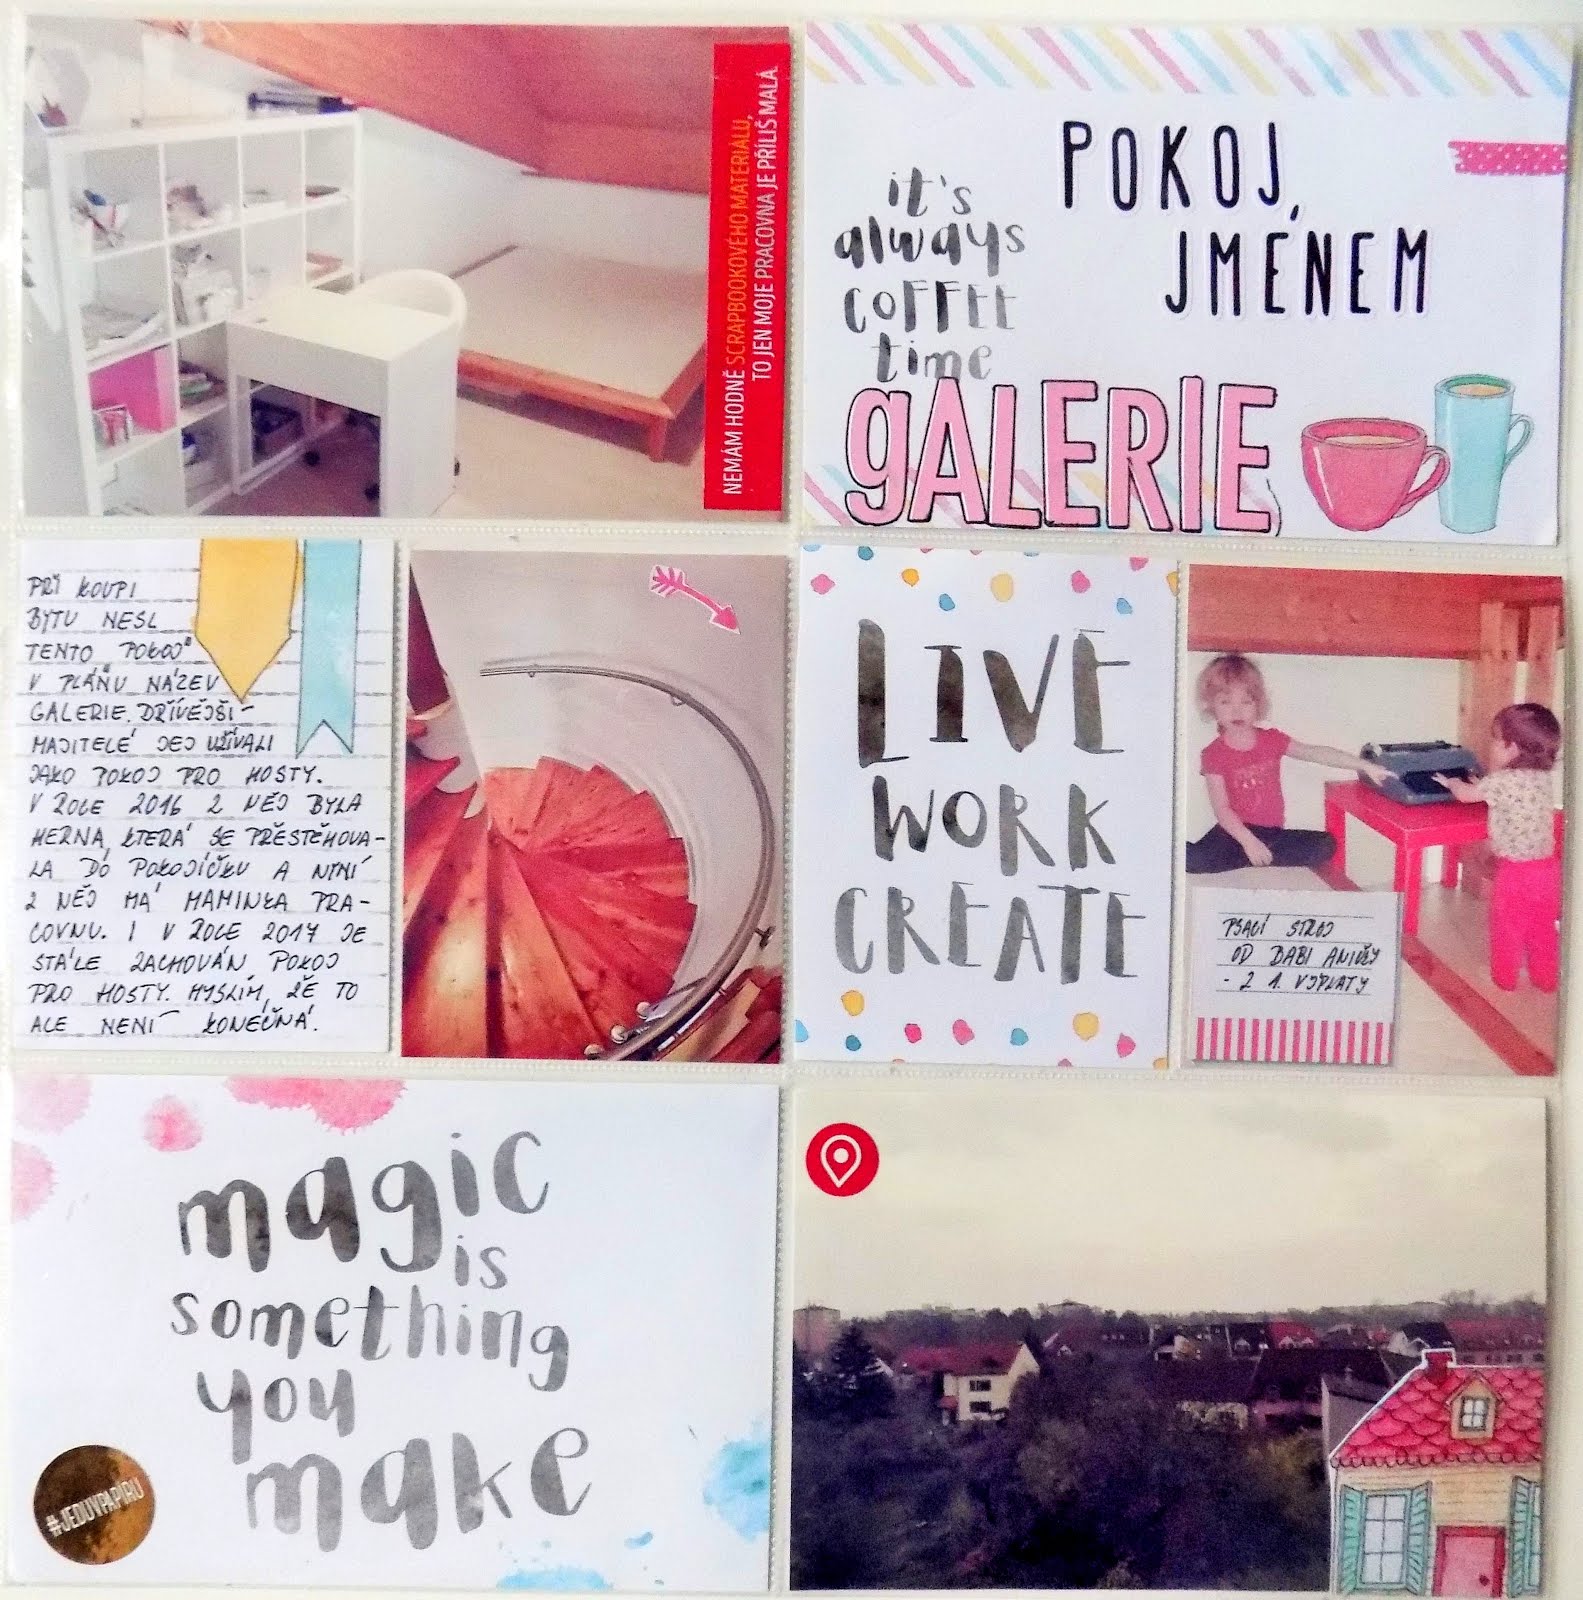 NEMÁM HODNĚ SCRAPBOOKOVÉHO MATERIÁLU,
TO JEN MOJE PRACOVNA JE PŘÍLIŠ MALÁ.
it's
always
COFFEE
time
POKOJ,
JMÉNEM
gALERIE
PŘI KOUPI
BYTU NESL
TENTO POKOJ
V PLÁNU NÁZEV
GALERIE. DŘÍVĚJŠÍ
MAJITELÉ JEJ UŽÍVALI
JAKO POKOJ PRO HOSTY.
V ROCE 2016 Z NĚJ BYLA
HERNA, KTERÁ SE PŘESTĚHOVA-
LA DO POKOJÍČKU A NYNÍ
Z NĚJ MÁ MAMINKA PRA-
COVNU. I V ROCE 2017 JE
STÁLE ZACHOVÁN POKOJ
PRO HOSTY. MYSLÍM, ŽE TO
ALE NENÍ KONEČNÁ.
LIVE
WORK
CREATE
PSACÍ STROJ
OD BABI ANIČKY
- Z 1. VÝPLATY
magic
is
something
you
make
#JEDUVPAPIRU